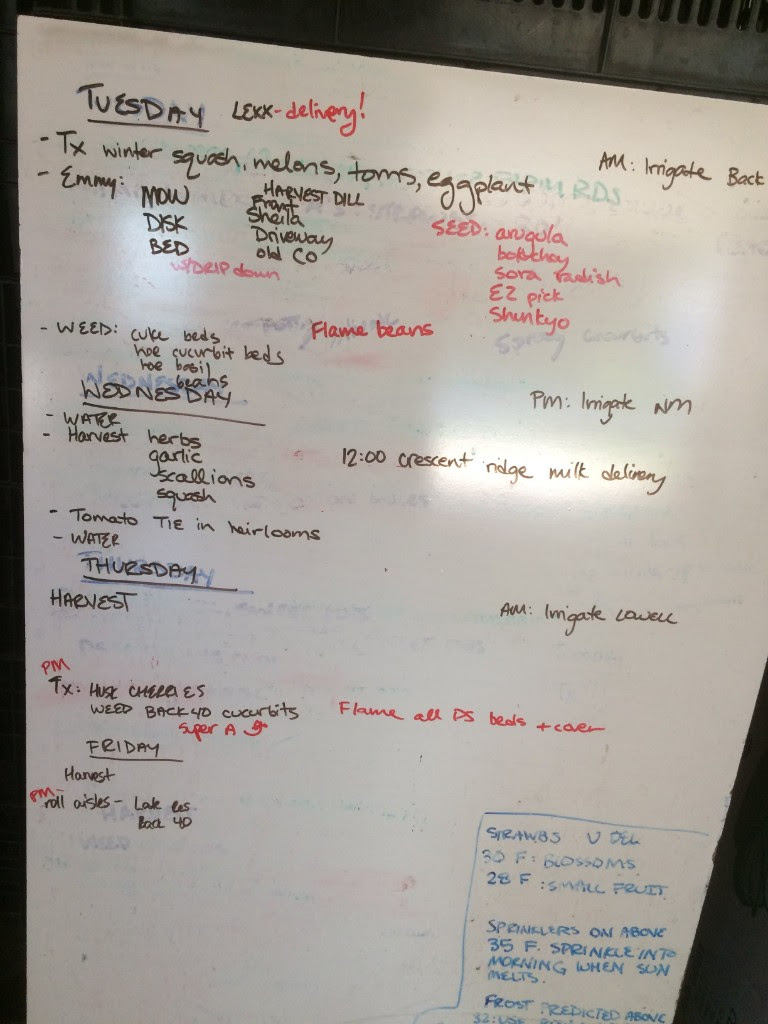 TUESDAY LEXX-delivery!
- Tx winter squash, melons, toms, eggplant
AM: Irrigate Back
- Emmy: MOW
DISK
BED
w/DRIP down
HARVEST DILL
Front
Sheila
Driveway
old CO
SEED: arugula
bokchoy
sora radish
EZ pick
Shunkyo
- WEED: cuke beds
hoe cucurbit beds
hoe basil
beans
Flame beans
Spray cucurbits
WEDNESDAY
PM: Irrigate NM
- WATER
- Harvest herbs
garlic
scallions
squash
12:00 crescent ridge milk delivery
- Tomato TIE in heirlooms
- WATER
THURSDAY
HARVEST
AM: Irrigate LOWELL
PM
Tx: HUSK CHERRIES
WEED BACK 40 cucurbits
Super A
Flame all DS beds + cover
FRIDAY
Harvest
PM
- roll aisles - Lake
Back 40
STRAWBS U DEL
30 F: BLOSSOMS
28 F: SMALL FRUIT
SPRINKLERS ON ABOVE
35 F. SPRINKLE INTO
MORNING WHEN SUN
MELTS.
FROST PREDICTED ABOVE
32: USE